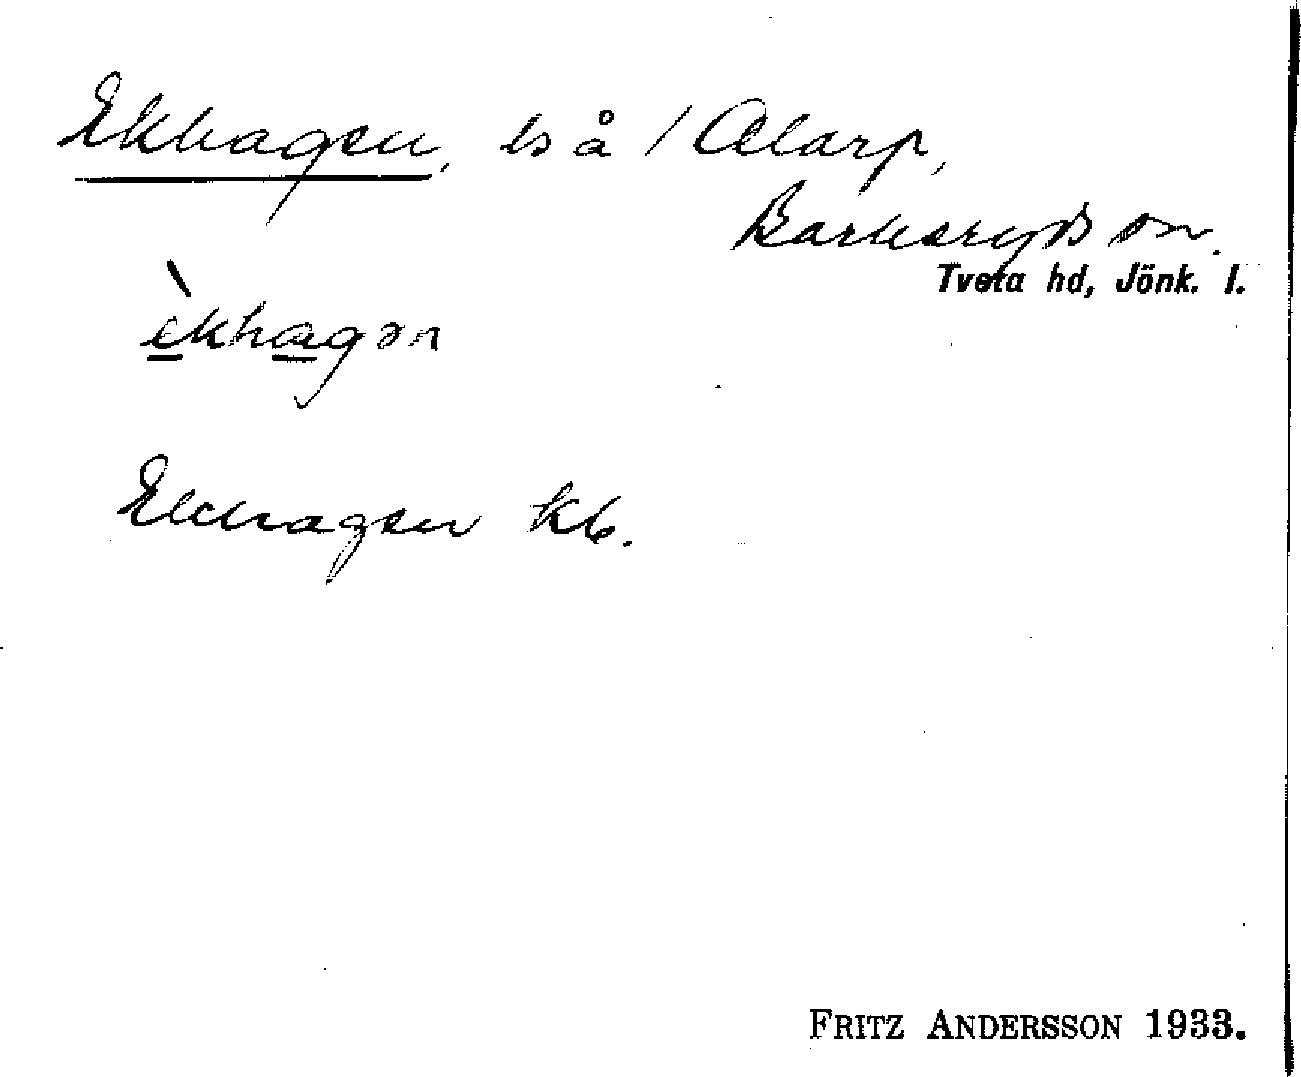 Ekhagen, ls å / Alarp,
Barkeryds sn.
Tveta hd, Jönk. l.
èkhagən
Ekhagen kb.
FRITZ ANDERSSON 1933.